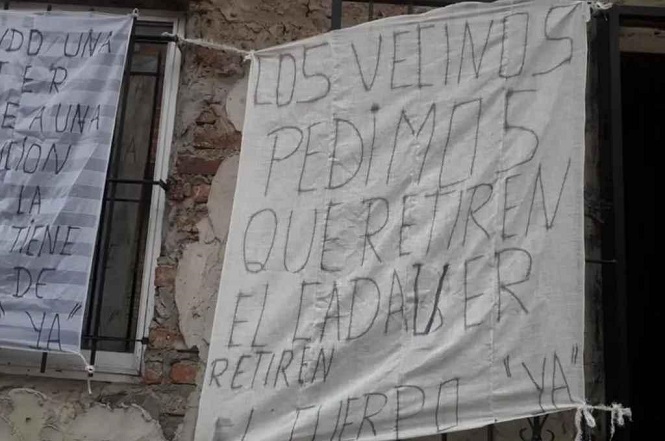 UNA
E A UNA
LA
TIENE
DE
"YA"
LOS VECINOS
PEDIMOS
QUE RETIREN
EL CADAVER
RETIREN
EL CUERPO "YA"